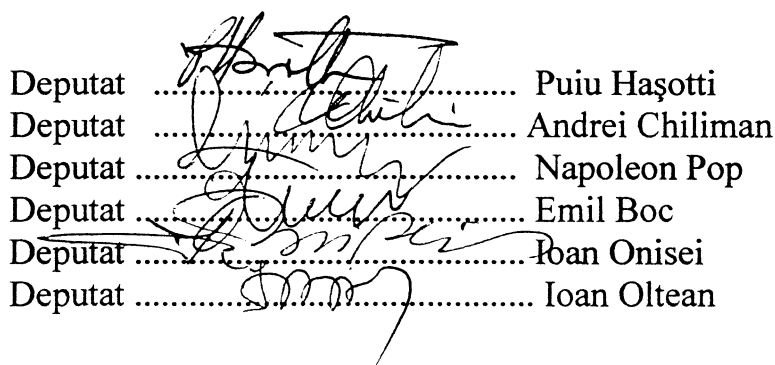 Deputat .................................... Puiu Haşotti
Deputat .................................... Andrei Chiliman
Deputat ...................................... Napoleon Pop
Deputat ....................................... Emil Boc
Deputat ....................................... Ioan Onisei
Deputat ........................................ Ioan Oltean